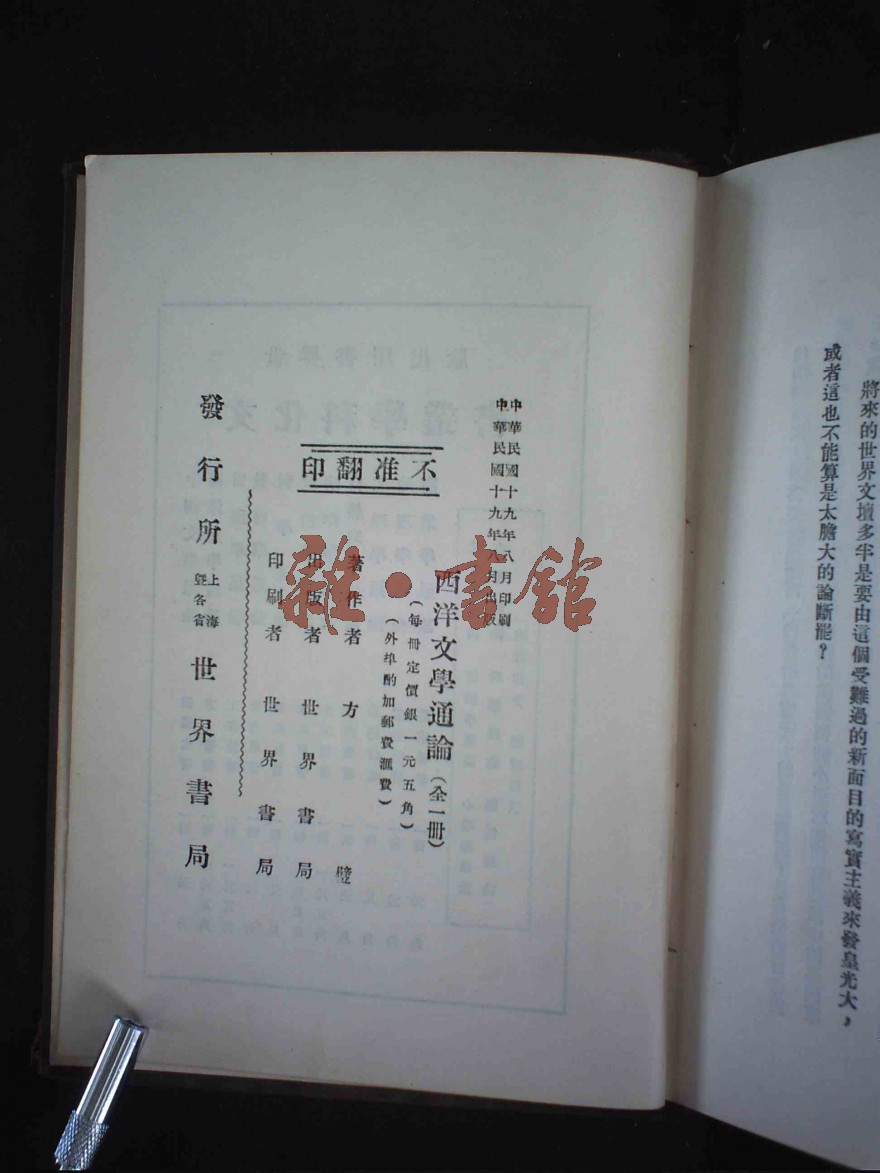 將來的世界文壇多半是要由這個受難過的新面目的寫實主義來發皇光大，
或者這也不能算是太膽大的論斷罷？
中華民國十九年八月印刷
中華民國十九年八月出版
西洋文學通論（全一冊）
（每冊定價銀一元五角）
（外埠酌加郵費滙費）
不准翻印
著作者 方璧
出版者 世界書局
印刷者 世界書局
發行所 上海暨各省 世界書局
雜·書館